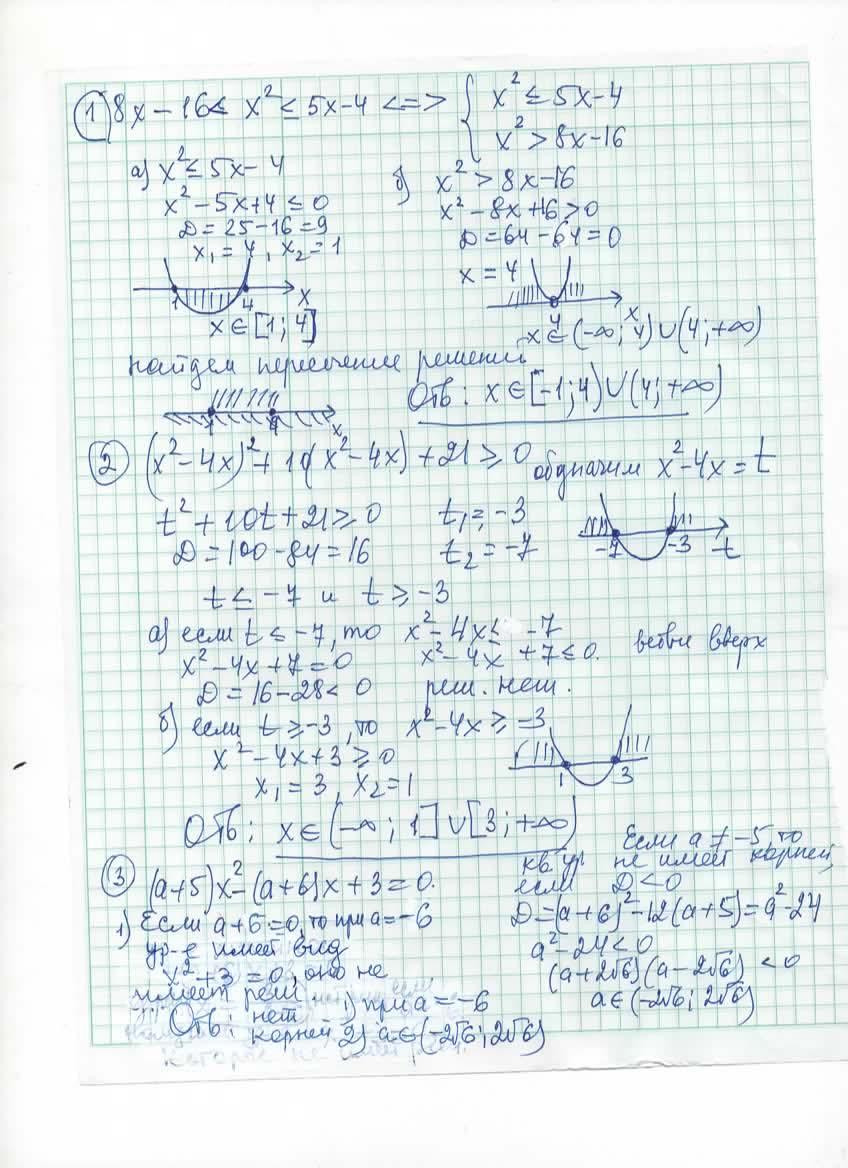 1 8x – 16 < x² ≤ 5x – 4 <=> { x² ≤ 5x – 4
x² > 8x – 16
а) x² ≤ 5x – 4
x² – 5x + 4 ≤ 0
D = 25 – 16 = 9
x₁ = 4, x₂ = 1
1 4 x
x ∈ [1; 4]
б) x² > 8x – 16
x² – 8x + 16 > 0
D = 64 – 64 = 0
x = 4
4 x
x ∈ (–∞; 4) ∪ (4; +∞)
найдем пересечение решений
1 4 x
Отв: x ∈ [–1; 4) ∪ (4; +∞)
2 (x² – 4x)² + 10(x² – 4x) + 21 ≥ 0 обозначим x² – 4x = t
t² + 10t + 21 ≥ 0 t₁ = –3
D = 100 – 84 = 16 t₂ = –7
–7 –3 t
t ≤ –7 и t ≥ –3
а) если t ≤ –7, то x² – 4x ≤ –7
x² – 4x + 7 = 0 x² – 4x + 7 ≤ 0. ветви вверх
D = 16 – 28 < 0 реш. нет.
б) если t ≥ –3, то x² – 4x ≥ –3
x² – 4x + 3 ≥ 0
x₁ = 3, x₂ = 1
1 3
Отв: x ∈ (–∞; 1] ∪ [3; +∞)
3 (a+5)x² – (a+6)x + 3 = 0.
1) Если a + 6 = 0, то при a = –6
ур-е имеет вид
x² + 3 = 0, оно не
имеет реш.
Если a ≠ –5, то
кв. ур не имеет корней,
если D < 0
D = (a+6)² – 12(a+5) = a² – 24
a² – 24 < 0
(a + 2√6)(a – 2√6) < 0
a ∈ (–2√6; 2√6)
Отв: нет 1) при a = –6
корней 2) a ∈ (–2√6; 2√6)